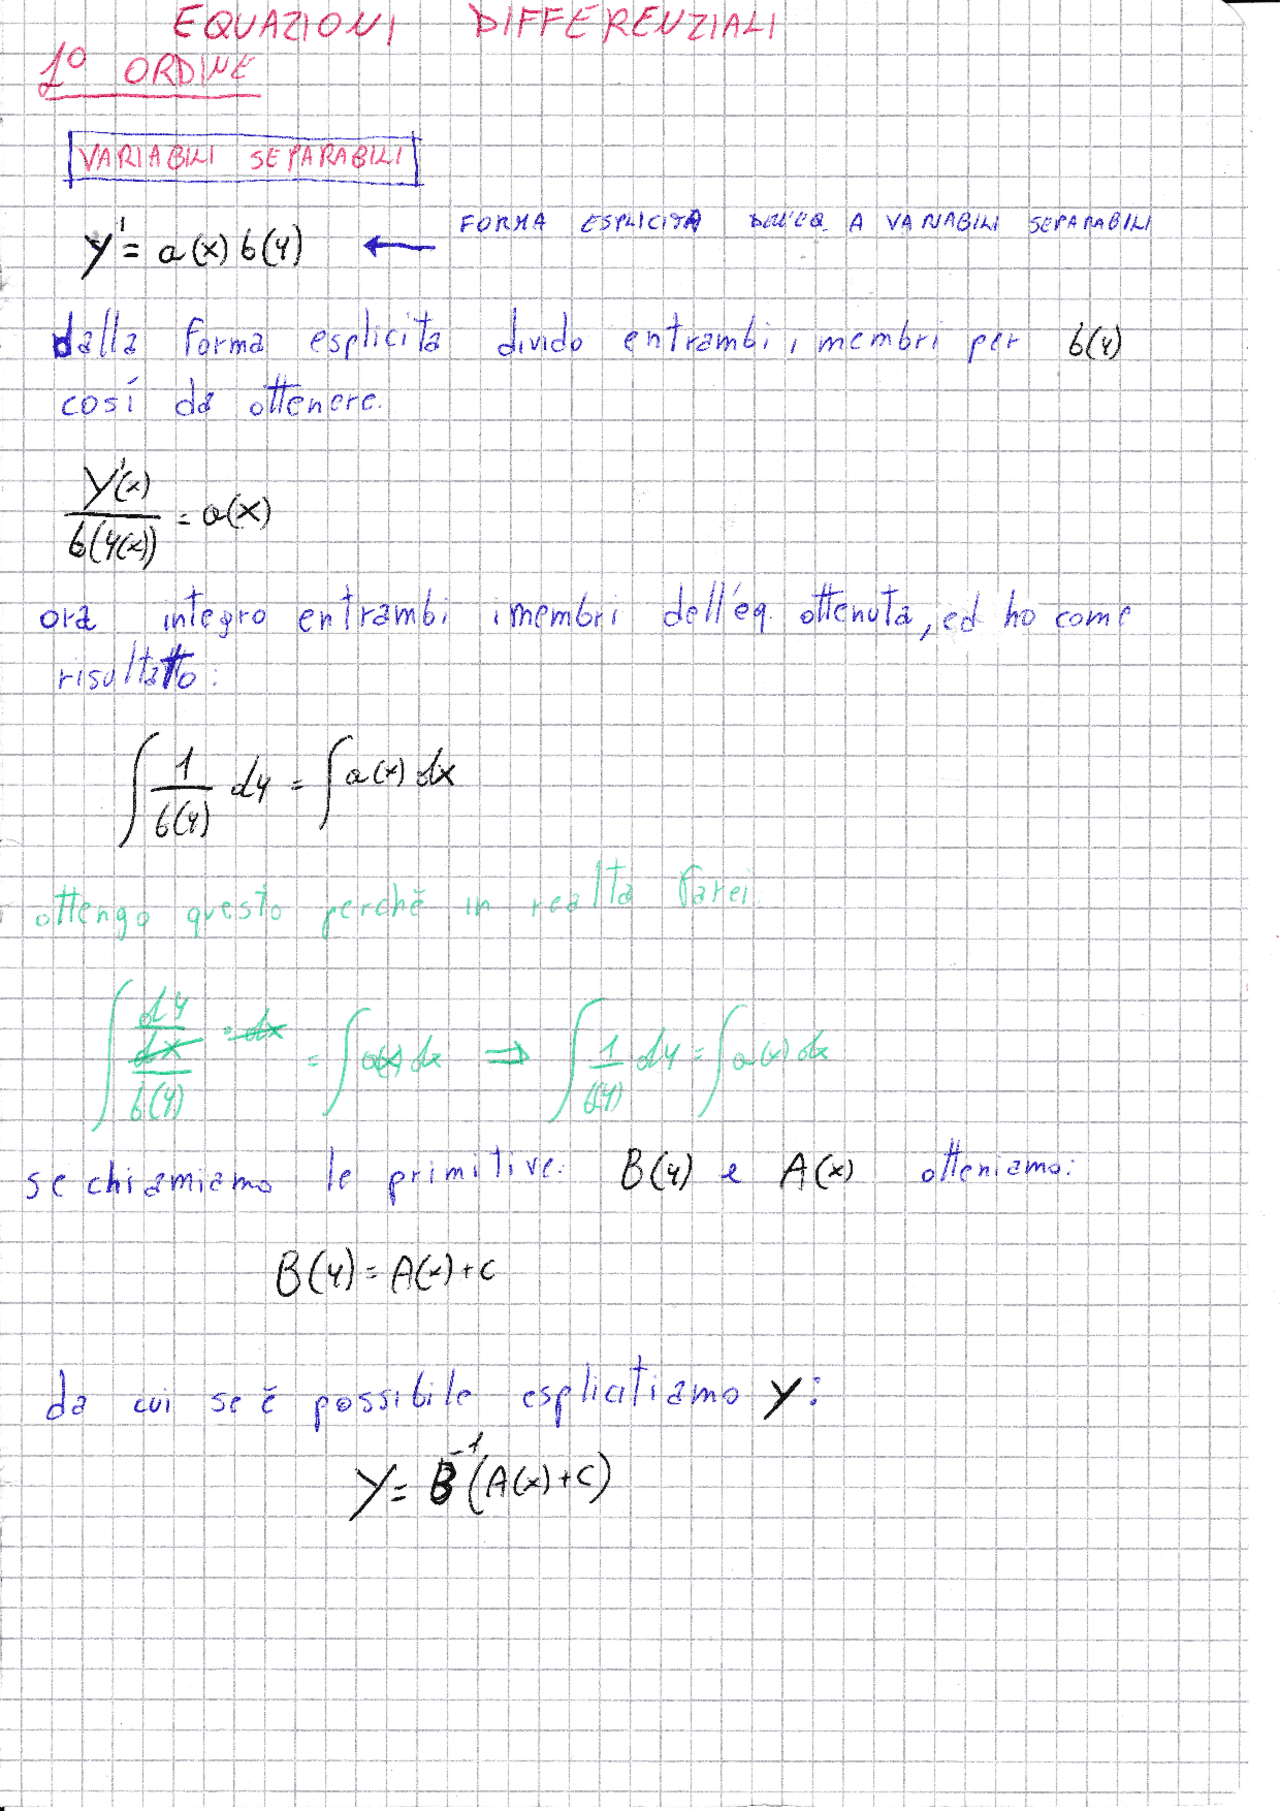 EQUAZIONI DIFFERENZIALI
1° ORDINE
VARIABILI SEPARABILI
y' = a(x) b(y) ← FORMA ESPLICITA DELL'EQ. A VARIABILI SEPARABILI
dalla forma esplicita divido entrambi i membri per b(y)
cosí da ottenere:
y'(x) / b(y(x)) = a(x)
ora integro entrambi i membri dell'eq. ottenuta, ed ho come
risultato:
∫ 1/b(y) dy = ∫ a(x) dx
ottengo questo perchè in realta farei:
∫ (dy/dx)/b(y) · dx = ∫ a(x) dx ⇒ ∫ 1/b(y) dy = ∫ a(x) dx
se chiamiamo le primitive: B(y) e A(x) otteniamo:
B(y) = A(x) + c
da cui se è possibile esplicitiamo y:
y = B⁻¹(A(x) + c)